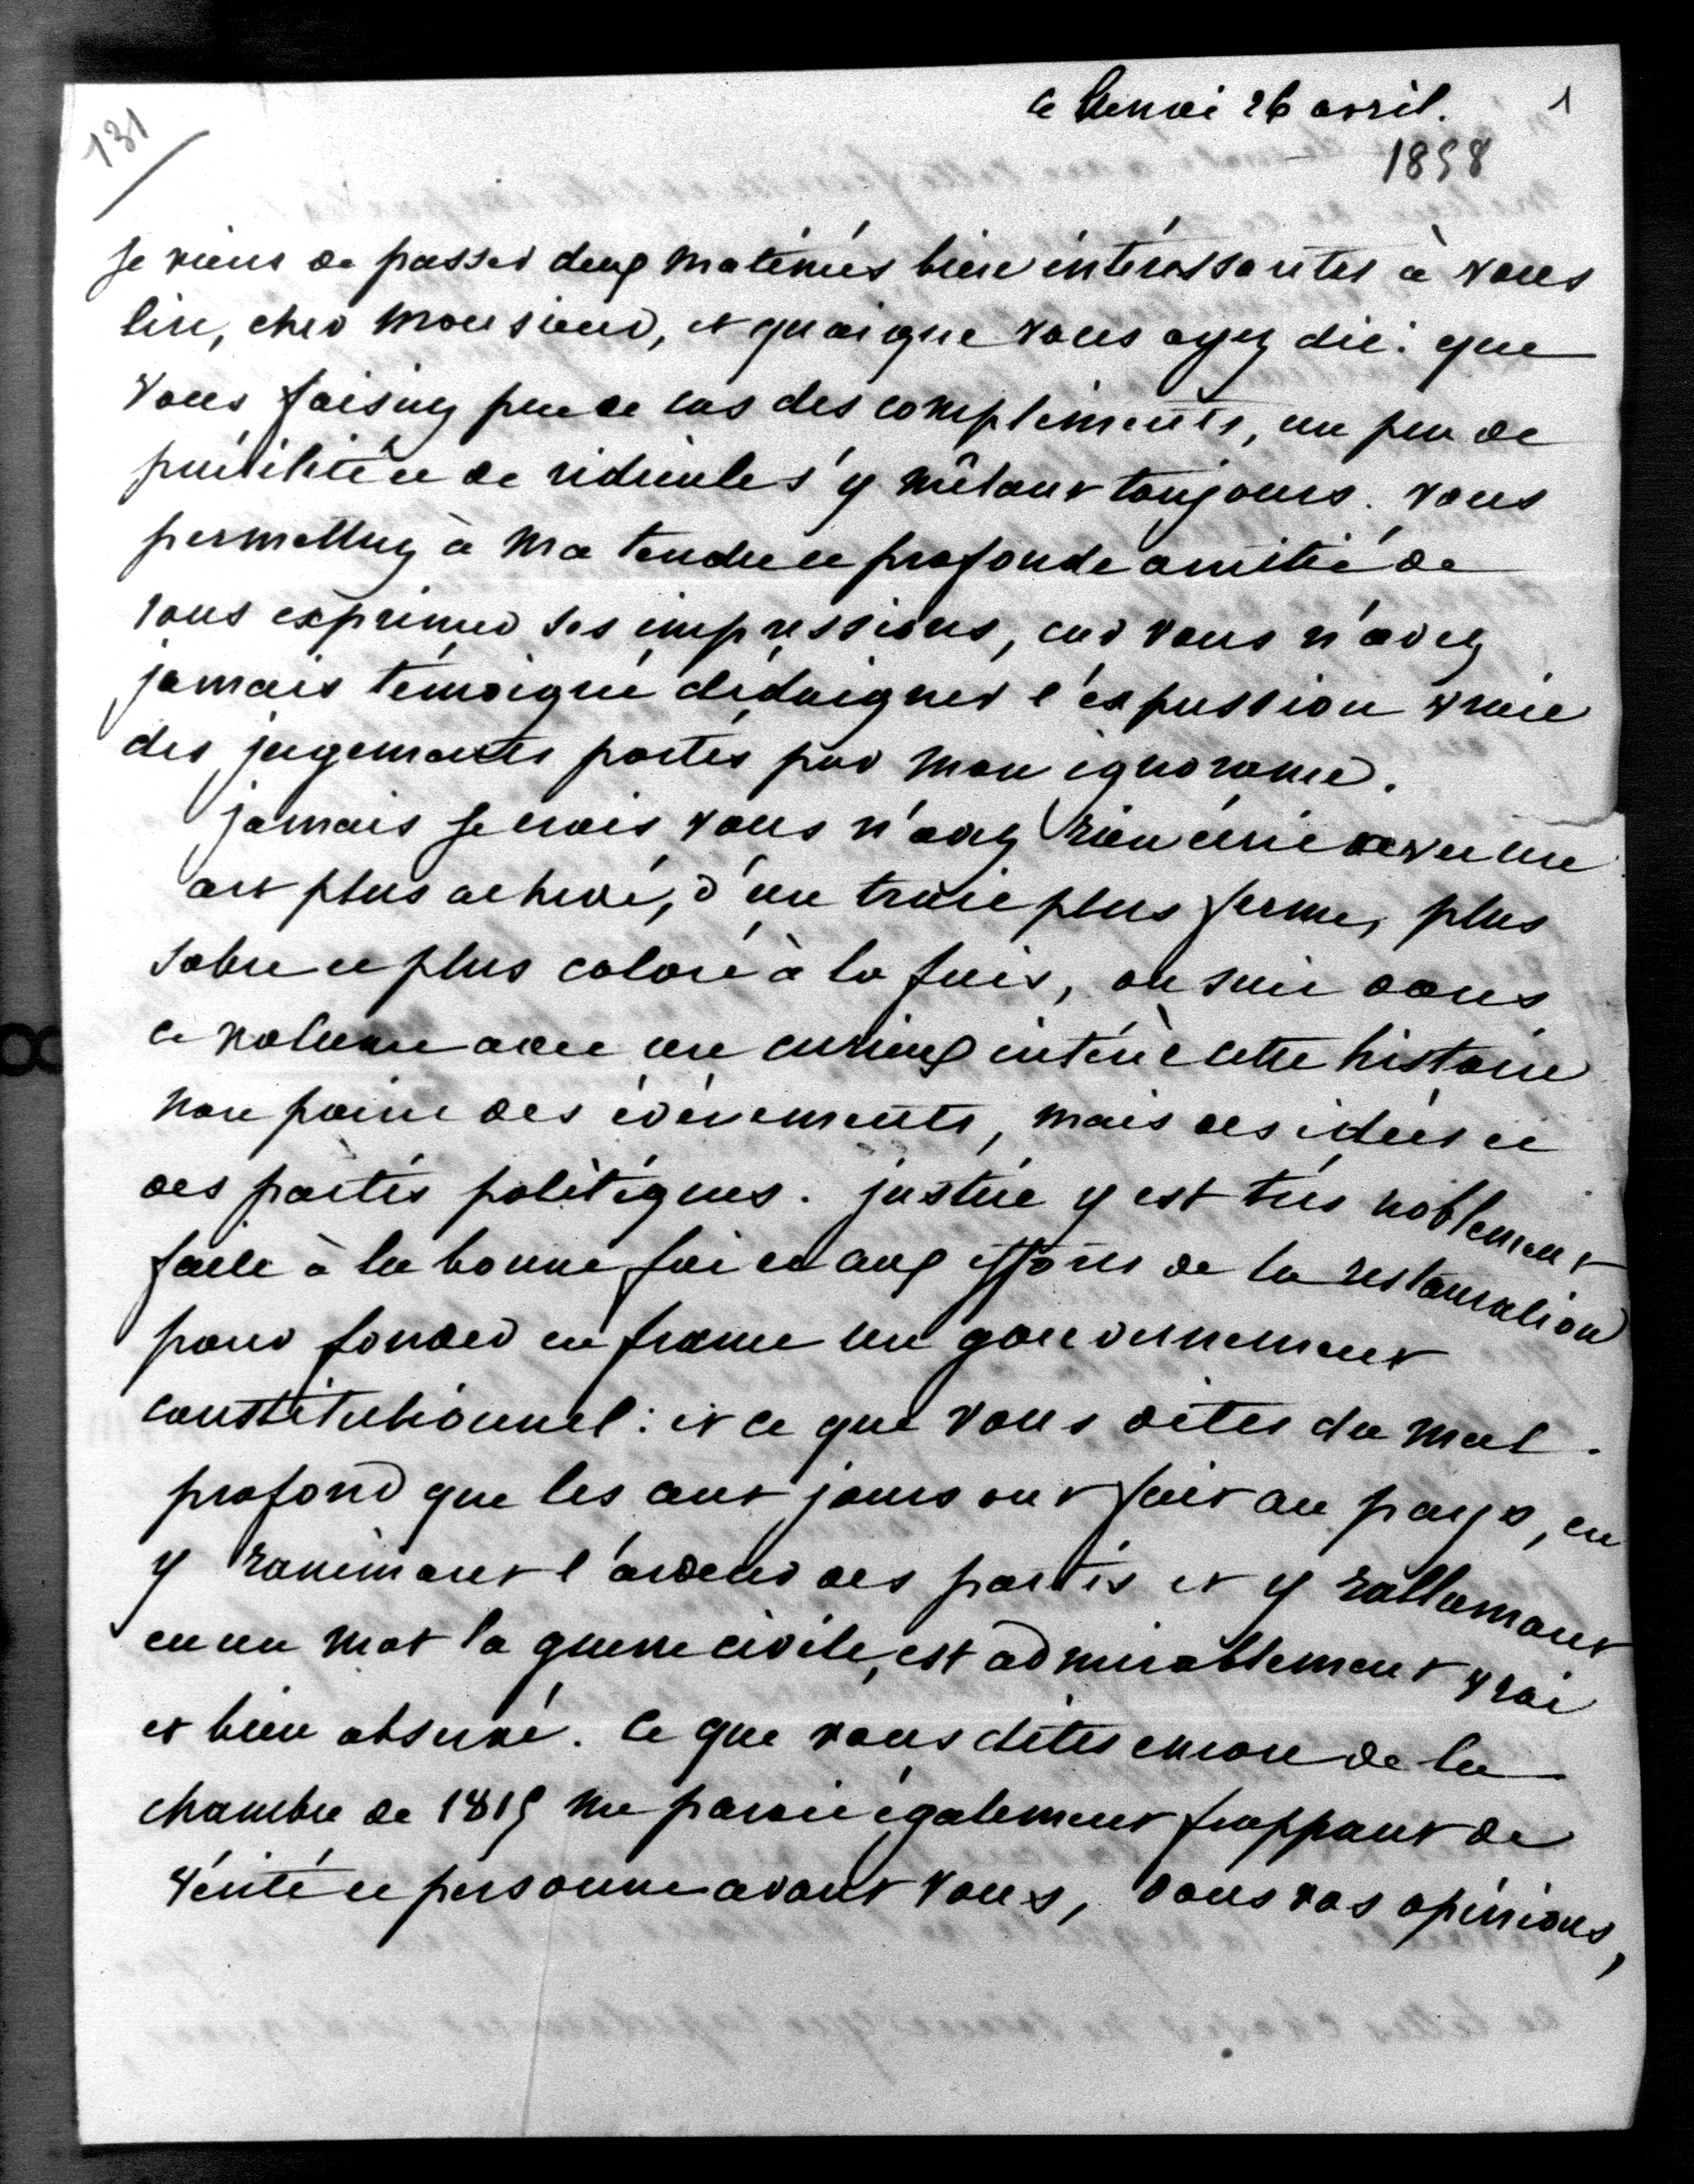 ce lundi 26 avril. 1
1858
131
je viens de passer deux matinées bien intéressantes à vous
lire, cher monsieur, et quoique vous ayez dit: que
vous faisiez peu de cas des compliments, un peu de
puérilité et de ridicule s'y mêlant toujours. vous
permettrez à ma tendre et profonde amitié de
vous exprimer ses impressions, car vous n'avez
jamais témoigné dédaigner l'expression vraie
des jugements portés par mon ignorance.
jamais je crois vous n'avez rien écrit avec un
art plus achevé, d'un trait plus ferme, plus
sobre et plus coloré à la fois, on suit dans
ce volume avec un curieux intérêt cette histoire
non point des événements, mais des idées et
des partis politiques. justice y est très noblement
faite à la bonne foi et aux efforts de la restauration
pour fonder en france un gouvernement
constitutionnel: et ce que vous dites du mal
profond que les cent jours ont fait au pays, en
y ranimant l'ardeur des partis et y rallumant
en un mot la guerre civile, est admirablement vrai
et bien observé. Ce que vous dites encore de la
chambre de 1815 me parait également frappant de
vérité et personne avant vous, dans vos opinions,